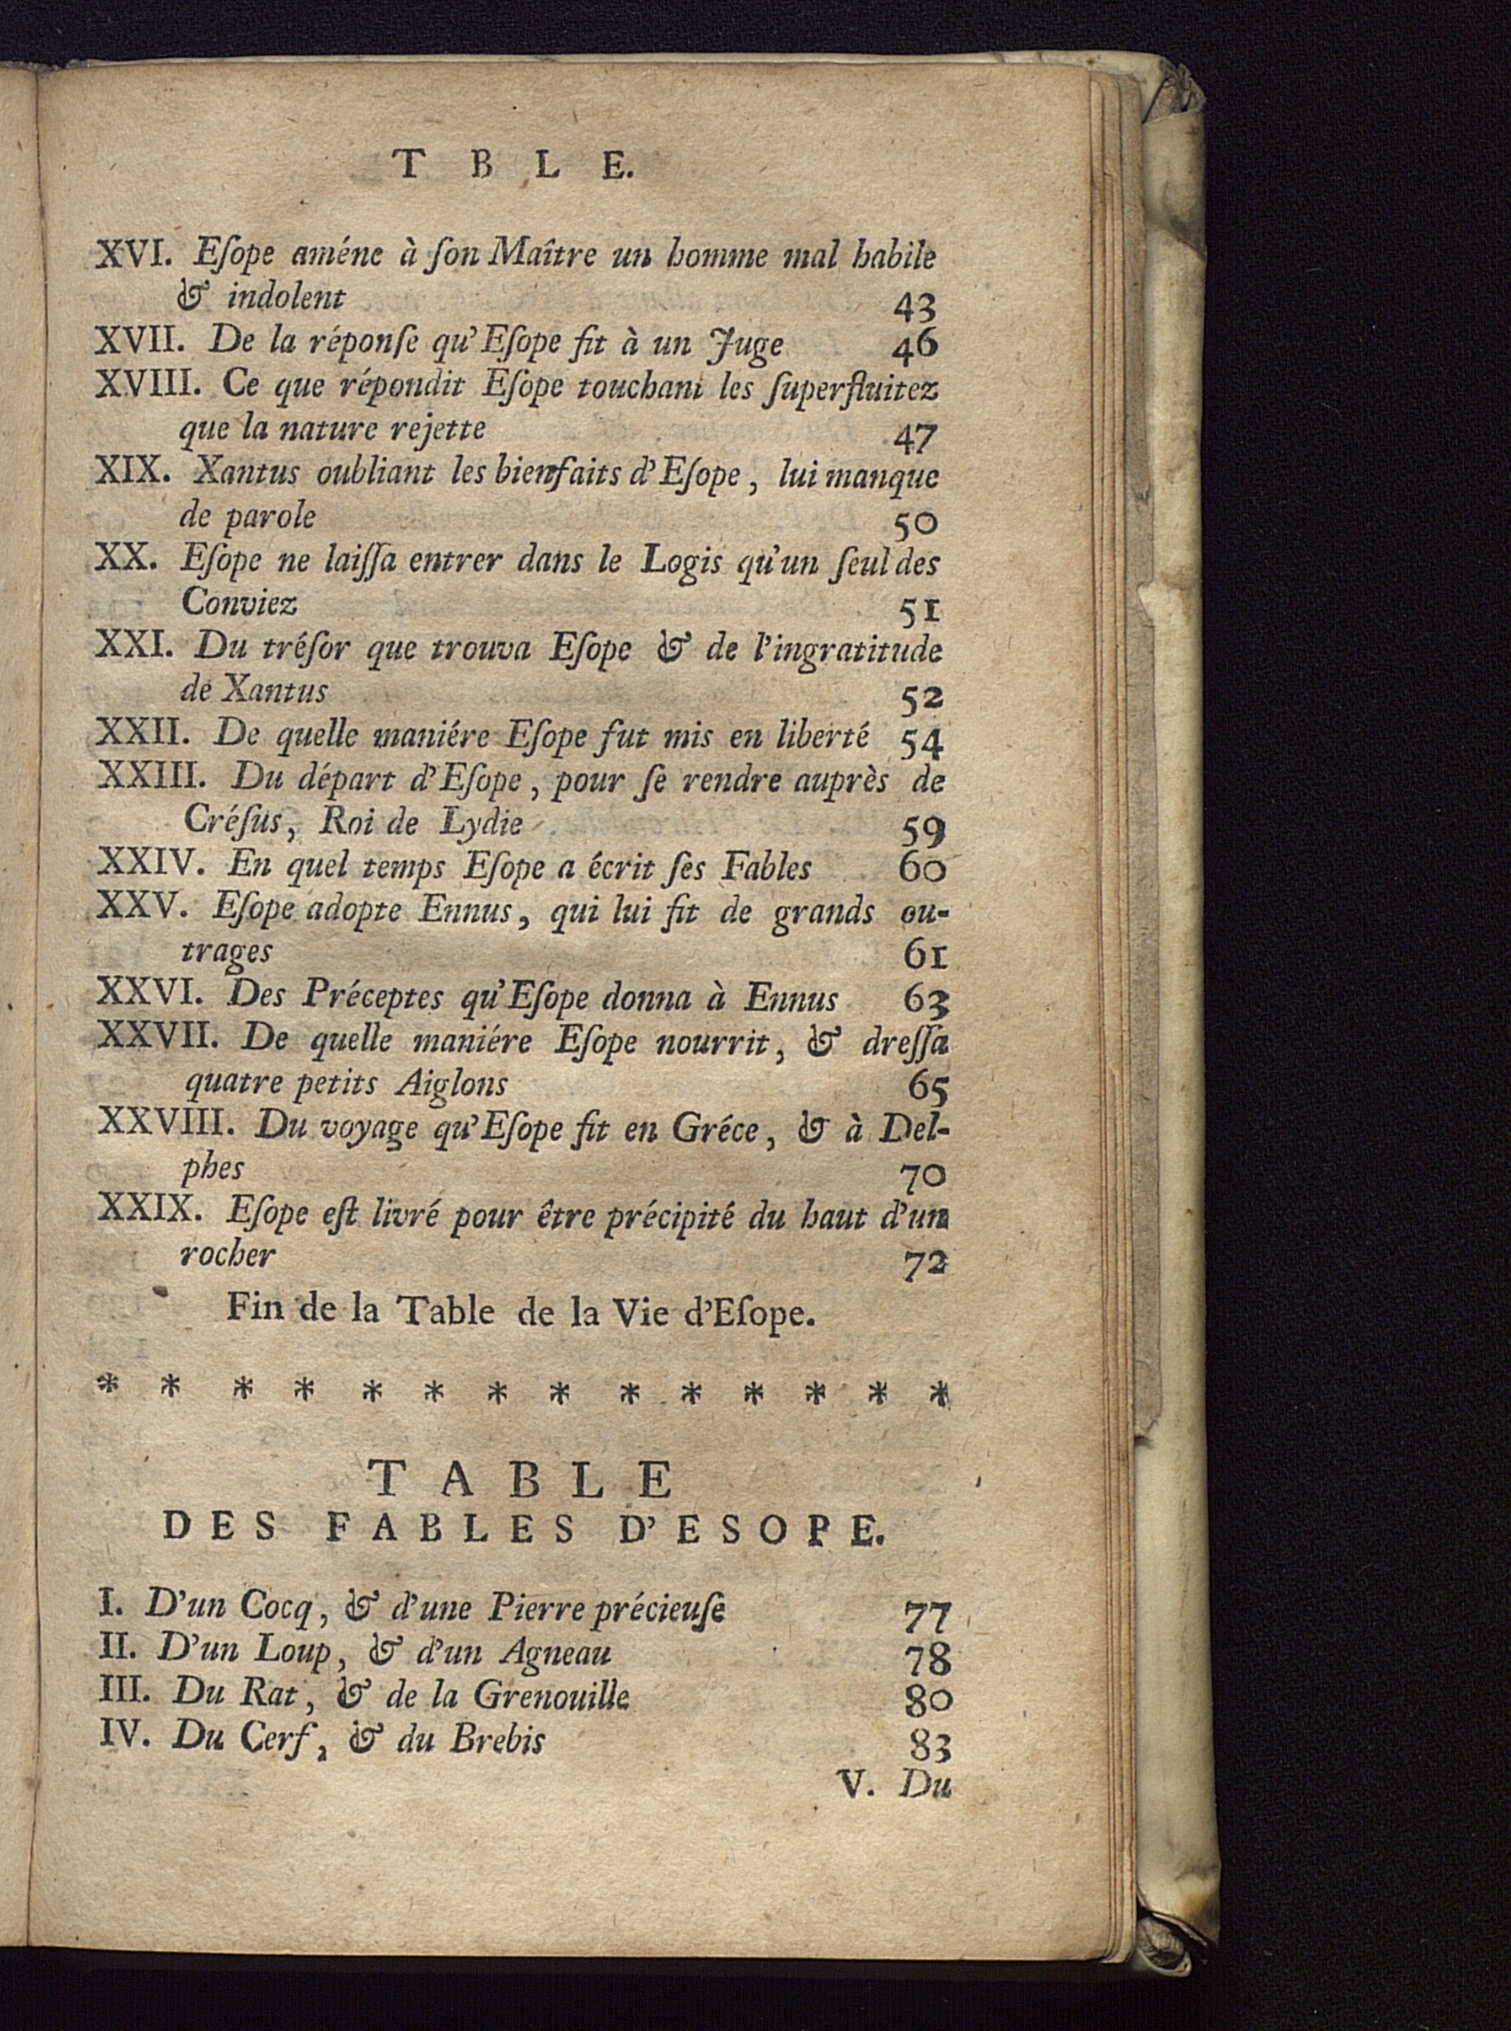 T B L E.
XVI. Eſope améne à ſon Maître un homme mal habile
& indolent 43
XVII. De la réponſe qu'Eſope fit à un Juge 46
XVIII. Ce que répondit Eſope touchant les ſuperfluitez
que la nature rejette 47
XIX. Xantus oubliant les bienfaits d'Eſope, lui manque
de parole 50
XX. Eſope ne laiſſa entrer dans le Logis qu'un ſeul des
Conviez 51
XXI. Du tréſor que trouva Eſope & de l'ingratitude
de Xantus 52
XXII. De quelle maniére Eſope fut mis en liberté 54
XXIII. Du départ d'Eſope, pour ſe rendre auprès de
Créſus, Roi de Lydie 59
XXIV. En quel temps Eſope a écrit ſes Fables 60
XXV. Eſope adopte Ennus, qui lui fit de grands ou-
trages 61
XXVI. Des Préceptes qu'Eſope donna à Ennus 63
XXVII. De quelle maniére Eſope nourrit, & dreſſa
quatre petits Aiglons 65
XXVIII. Du voyage qu'Eſope fit en Gréce, & à Del-
phes 70
XXIX. Eſope eſt livré pour être précipité du haut d'un
rocher 72
Fin de la Table de la Vie d'Eſope.
* * * * * * * * * * * * * *
T A B L E
DES FABLES D'ESOPE.
I. D'un Cocq, & d'une Pierre précieuſe 77
II. D'un Loup, & d'un Agneau 78
III. Du Rat, & de la Grenouille 80
IV. Du Cerf, & du Brebis 83
V. Du